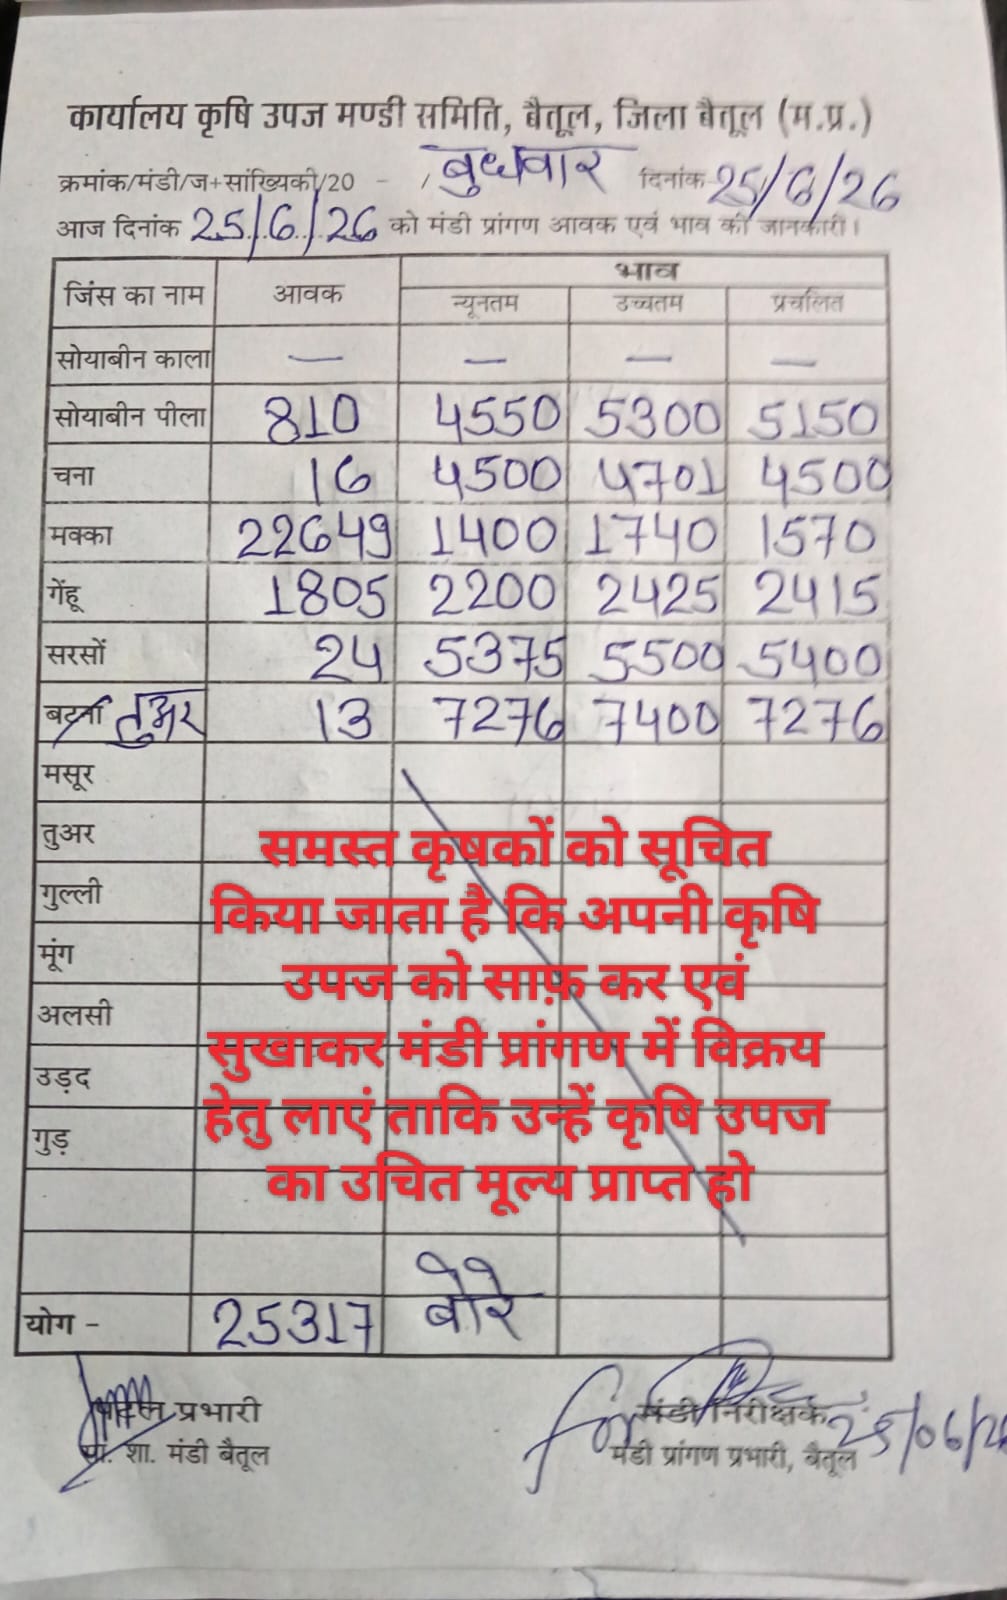 कार्यालय कृषि उपज मण्डी समिति, बैतूल, जिला बैतूल (म.प्र.)
क्रमांक/मंडी/ज+सांख्यिकी/20 - / बुधवार दिनांक 25/6/26
आज दिनांक 25/6/26 को मंडी प्रांगण आवक एवं भाव की जानकारी।
जिंस का नाम आवक भाव
न्यूनतम उच्चतम प्रचलित
सोयाबीन काला — — — —
सोयाबीन पीला 810 4550 5300 5150
चना 16 4500 4701 4500
मक्का 22649 1400 1740 1570
गेंहू 1805 2200 2425 2415
सरसों 24 5375 5500 5400
बटना तुअर 13 7276 7400 7276
मसूर
तुअर
गुल्ली
मूंग
अलसी
उड़द
गुड़
समस्त कृषकों को सूचित
किया जाता है कि अपनी कृषि
उपज को साफ़ कर एवं
सुखाकर मंडी प्रांगण में विक्रय
हेतु लाएं ताकि उन्हें कृषि उपज
का उचित मूल्य प्राप्त हो
योग - 25317 बोरे
प्रभारी मंडी निरीक्षक 25/06/26
शा. मंडी बैतूल मंडी प्रांगण प्रभारी, बैतूल